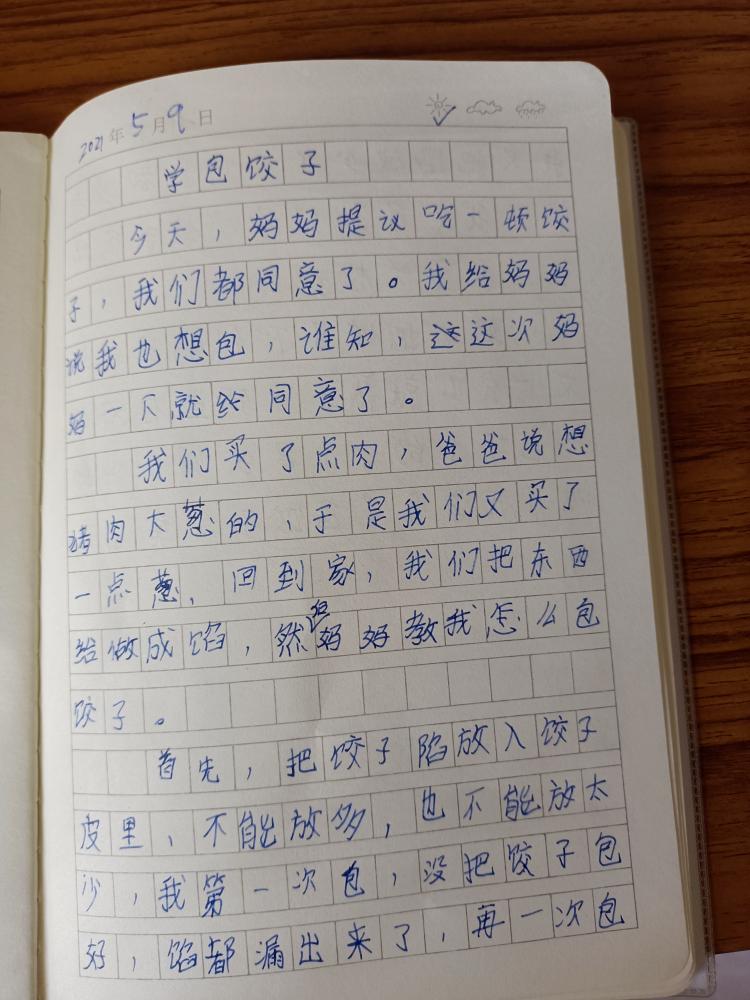 2021年5月9日
学包饺子
今天，妈妈提议吃一顿饺
子，我们都同意了。我给妈妈
说我也想包，谁知，这这次妈
妈一下就给同意了。
我们买了点肉，爸爸说想
猪肉大葱的，于是我们又买了
一点葱，回到家，我们把东西
给做成馅，然后妈妈教我怎么包
饺子。
首先，把饺子陷放入饺子
皮里，不能放多，也不能放太
少，我第一次包，没把饺子包
好，馅都漏出来了，再一次包